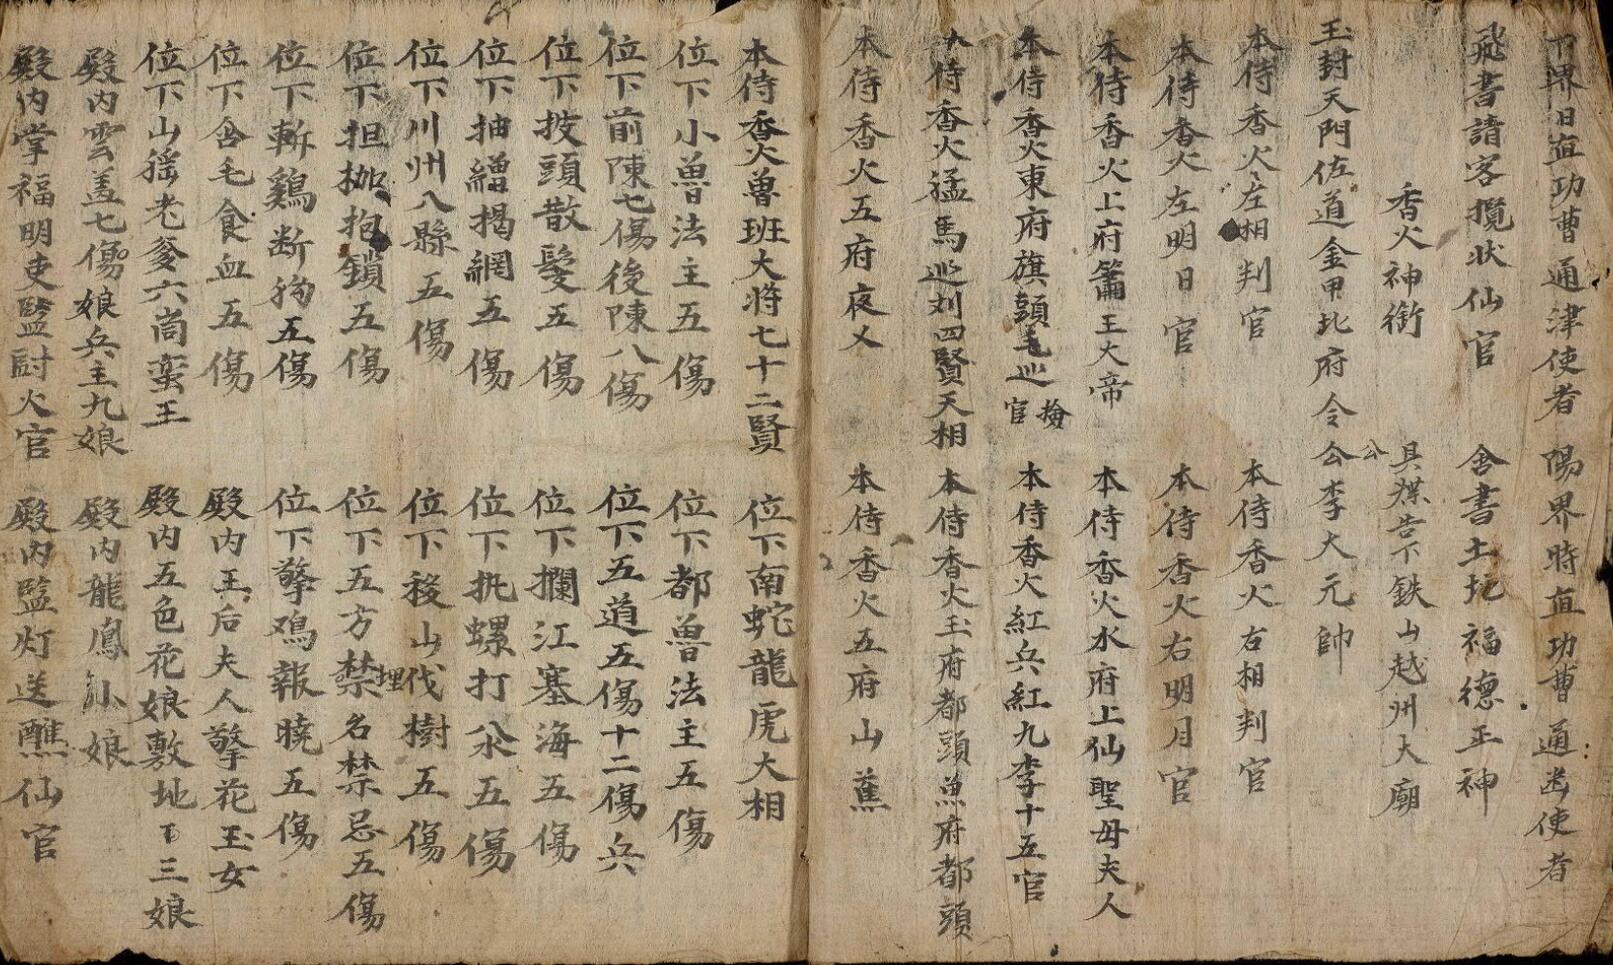 下界日直功曹通津使者 陽界時直功曹通幽使者
飛書請客攬状仙官 舍書土圠福德正神
香火神銜 具牒告下鉄山越州大廟
玉封天門佐道金甲圠府令公李大元帥
公
本侍香火左相判官 本侍香火右相判官
本侍香火左明日官 本侍香火右明月官
本侍香火上府簫王大帝 本侍香火水府上仙聖母夫人
本侍香火東府旗頭毛巡檢官 本侍香火紅兵紅九李十五官
本侍香火猛馬巡刘四賢天相 本侍香火玉府都頭魚府都頭
本侍香火五府夜乂 本侍香火五府山蕉
本侍香火兽班大將七十二賢 位下南蛇龍虎大相
位下小兽法主五傷 位下都兽法主五傷
位下前陳七傷後陳八傷 位下五道五傷十二傷兵
位下披頭散髮五傷 位下攔江塞海五傷
位下抽繒揭網五傷 位下扤螺打㳄五傷
位下川州八縣五傷 位下移山伐樹五傷
位下担枷抱鎖五傷 位下五方禁名禁忌五傷
埋
位下斬鷄断狗五傷 位下擎鳮報曉五傷
位下含毛食血五傷 殿内王后夫人擎花玉女
位下山徭老爹六峝蛮王 殿内五色花娘敷地三娘
殿内雲盖七傷娘兵主九娘 殿内龍鳳小娘
殿内掌福明吏監厨火官 殿内監灯送醮仙官